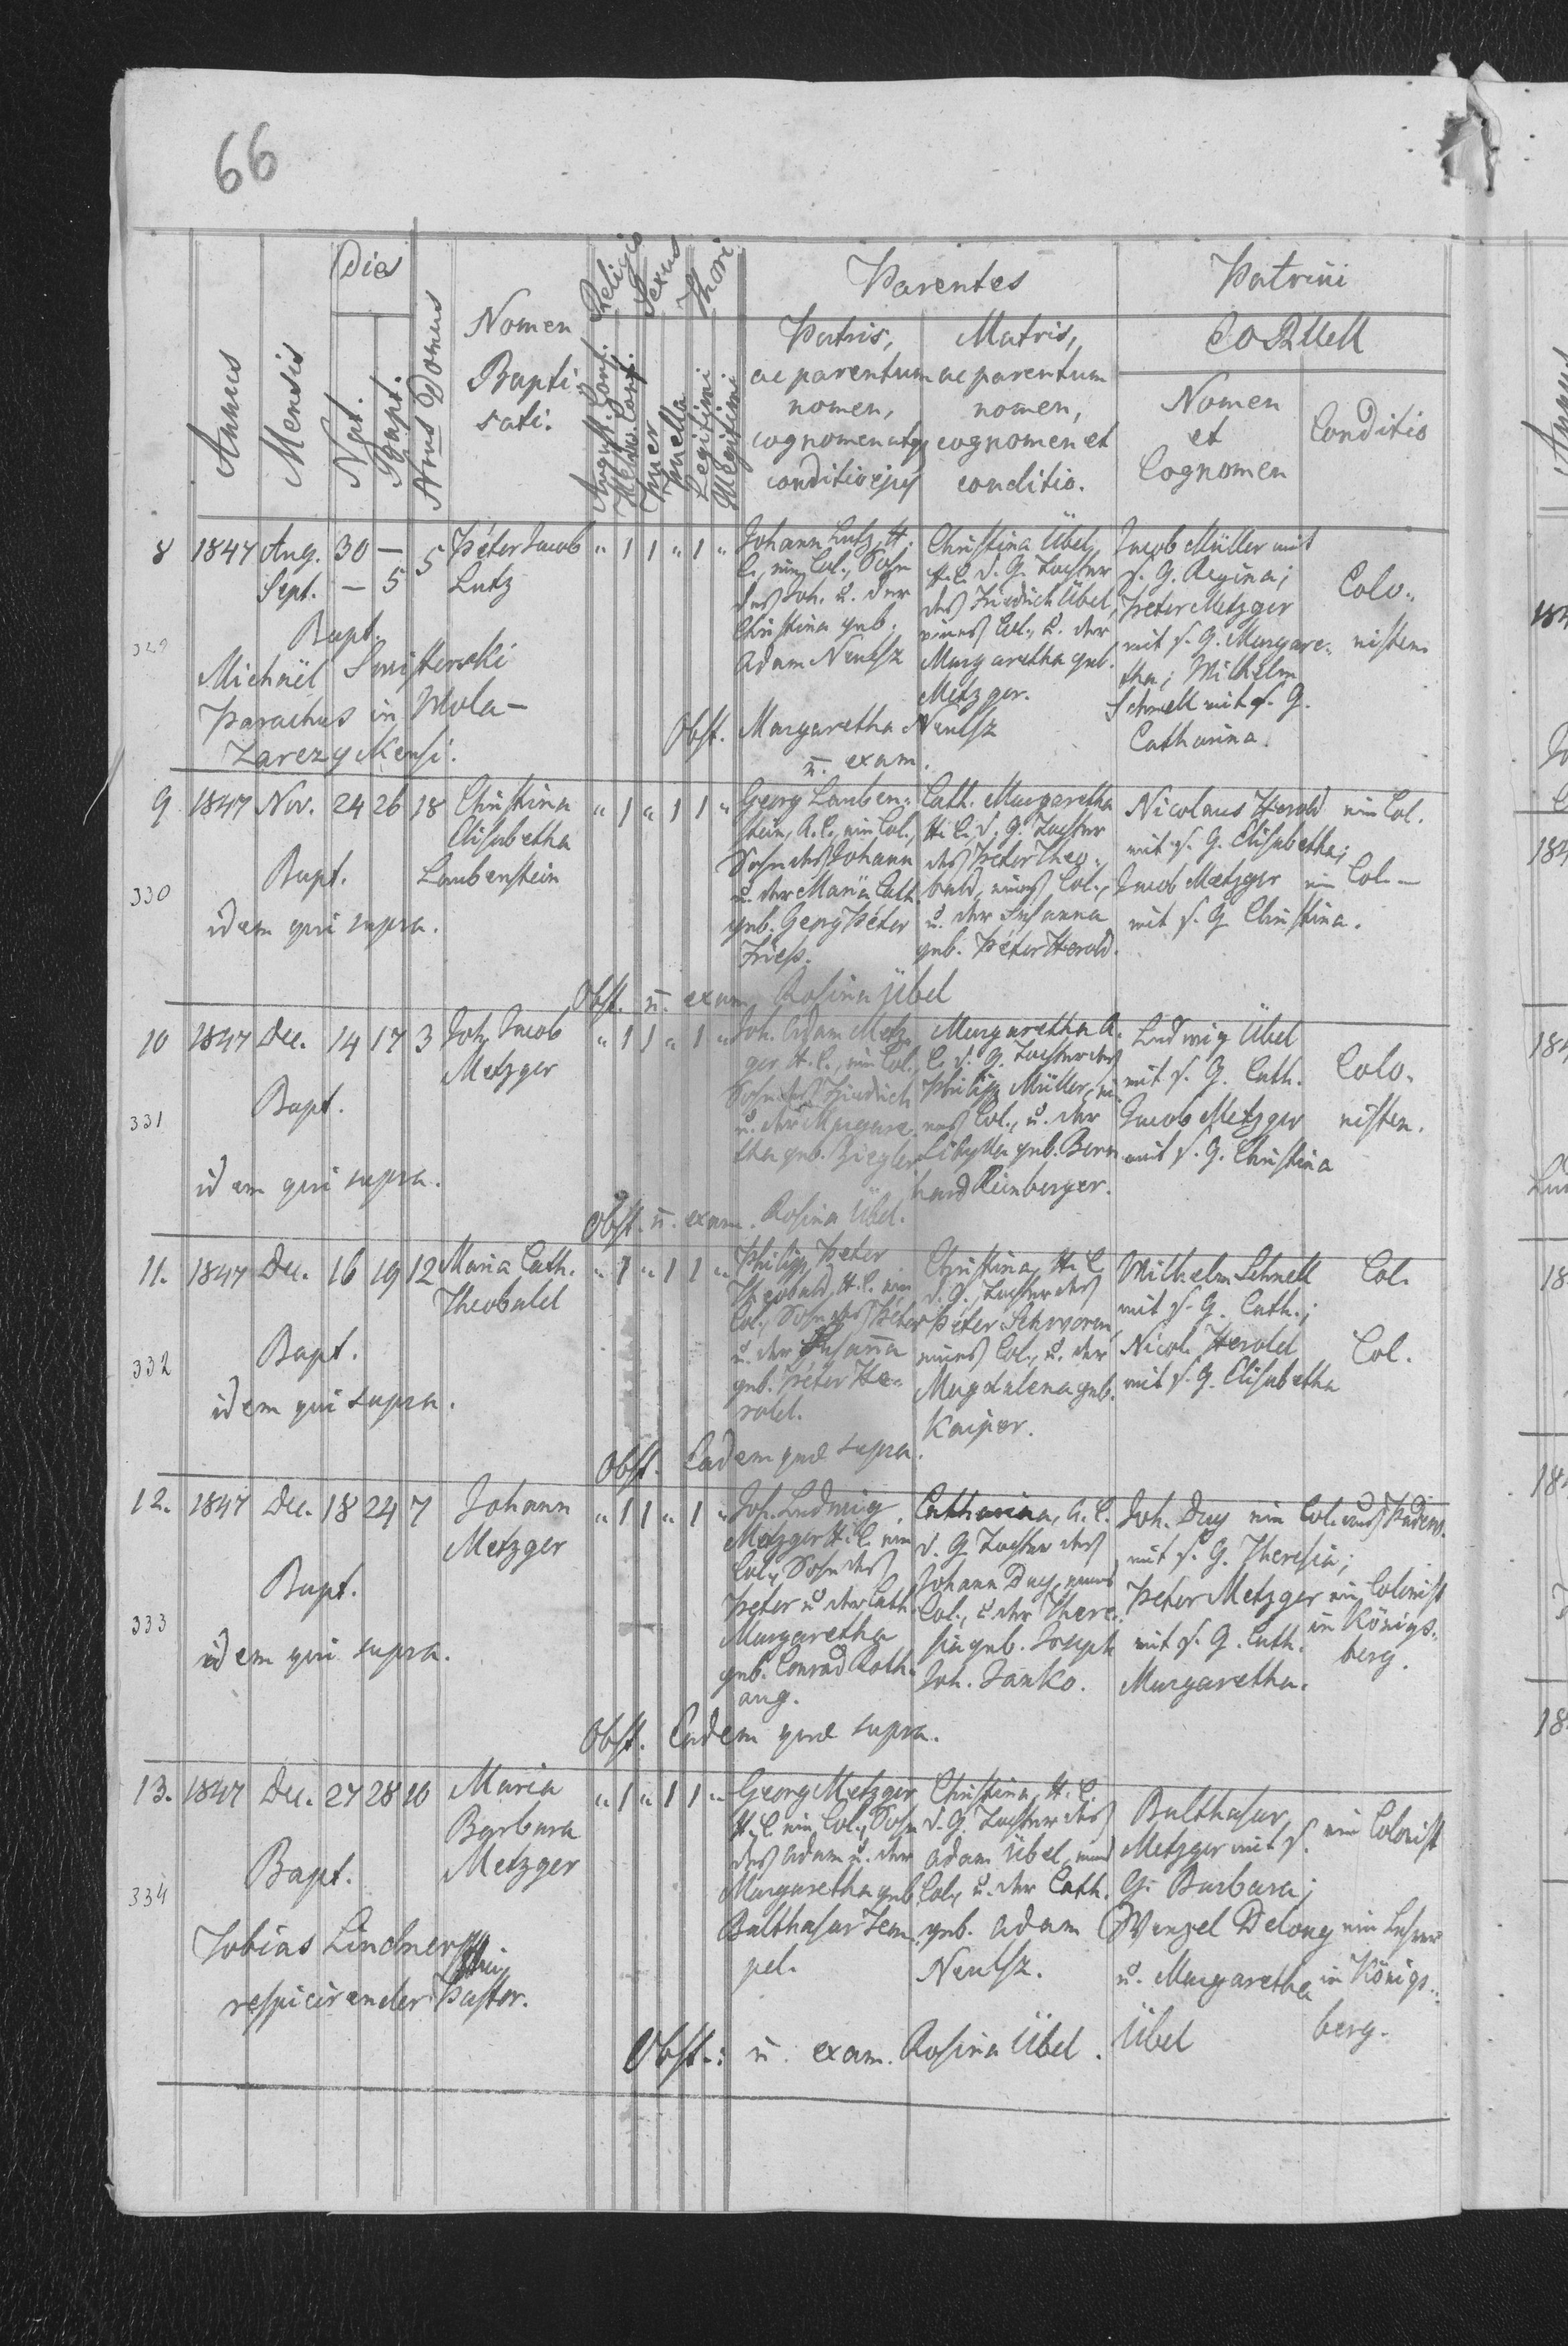 66
Dies
Religio
Sexus
Thori
Parentes
Patrini
Annus
Mensis
Nat.
Bapt.
Nrus Domus
Nomen
Bapti
sati.
August. Conf.
Helv. Conf.
Puer
Puella
Legitimi
Illegitimi
Patris,
ac parentum
nomen,
cognomen atq
conditio ejus
Matris,
ac parentum
nomen,
cognomen et
conditio.
Nomen
et
Cognomen
Conditio
8 1847 Aug. 30 — 5 Peter Jacob " 1 1 " 1 "
Sept. — 5 Lutz
Bapt.
329
Michaël
Parochus in Wola-
Zarczyckensi.
Johann Lutz, H.
C., ein Col., Sohn
des Joh. u. der
Christina geb.
Adam Neutsz
Christina Übel,
H. C. d. G. Tochter
des Friedrich Übel,
eines Col., u. der
Margaretha geb.
Metzger.
Jacob Müller mit
s. G. Regina;
Peter Metzger
mit s. G. Margare-
tha; Wilhelm
Schnell mit s. G.
Catharina.
Colo-
nisten
Obst. Margaretha Neutsz
u. exam.
9 1847 Nov. 24 26 18 Christina " 1 " 1 1 "
Elisabetha
Laubenstein
Bapt.
330
idem qui supra.
Georg Lauben-
stein, A. C., ein Col.,
Sohn des Johann
u. der Maria Cath.
geb. Georg Peter
Fries.
Cath. Margaretha
H. C. d. G. Tochter
des Peter Theo-
bald, eines Col.,
u. der Susanna
geb. Peter Herold.
Nicolaus Herold ein Col.
mit s. G. Elisabetha;
Jacob Metzger ein Col. —
mit s. G. Christina.
Obst. u. exam. Rosina Übel
10 1847 Dec. 14 17 3 Joh. Jacob " 1 1 " 1 "
Metzger
Bapt.
331
idem qui supra.
Joh. Adam Metz-
ger H. C., ein Col.,
Sohn des Friedrich
u. der Margare-
tha geb. Ziegler
Margaretha A.
C. d. G. Tochter des
Philipp Müller, ei-
nes Col., u. der
Sibylla geb. Bern-
hard Reinberger.
Ludwig Übel
mit s. G. Cath.
Jacob Metzger
mit s. G. Christina
Colo-
nisten.
Obst. u. exam. Rosina Übel.
11. 1847 Dec. 16 19 12 Maria Cath. " 1 " 1 1 "
Theobald
Bapt.
332
idem qui supra.
Philipp Peter
Theobald, H. C. ein
Col., Sohn des Peter
u. der Susanna
geb. Peter He-
rold.
Christina, H. C.
d. G. Tochter des
Peter Schworm,
eines Col., u. der
Magdalena geb.
Kaiper.
Wilhelm Schnell Col.
mit s. G. Cath.;
Nicol. Herold Col.
mit s. G. Elisabetha
Obst. Eadem quæ supra.
12. 1847 Dec. 18 24 7 Johann " 1 1 " 1 "
Metzger
Bapt.
333
idem qui supra.
Joh. Ludwig
Metzger H. C. ein
Col., Sohn des
Peter u. der Cath.
Margaretha
geb. Conrad Roth-
ang.
Catharina, A. C.
d. G. Tochter des
Johann Duy, eines
Col., u. der There-
sia geb. Joseph
Joh. Janko.
Joh. Duy ein Col. aus
mit s. G. Theresia;
Peter Metzger ein Colonist
mit s. G. Cath. in Königs-
Margaretha. berg.
Obst. Eadem quæ supra.
13. 1847 Dec. 27 28 10 Maria " 1 " 1 1 "
Barbara
Metzger
Bapt.
334
Tobias Lindner
respicirender Pastor.
Georg Metzger
H. C. ein Col., Sohn
des Adam u. der
Margaretha geb.
Balthasar Tem-
pel.
Christina, H. C.
d. G. Tochter des
Adam Übel, eines
Col., u. der Cath.
geb. Adam
Neutsz.
Balthasar
Metzger mit s. ein Colonist
G. Barbara;
Wenzel Delong ein Lehrer
u. Margaretha in Königs-
Übel berg.
Obst.: u. exam. Rosina Übel.